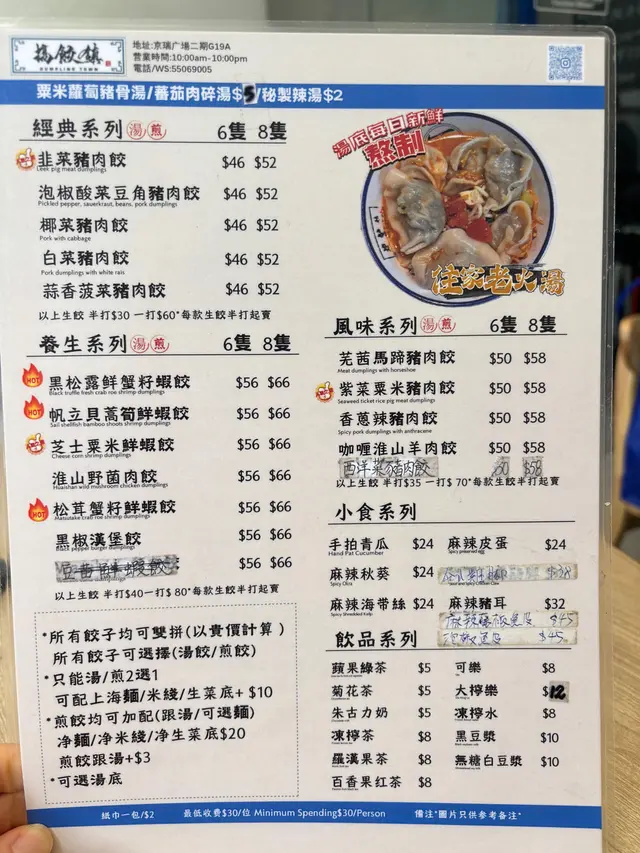 餃鎮
DUMPLING TOWN
地址:京瑞广場二期G19A
營業時間:10:00am-10:00pm
電話/WS:55069005
粟米蘿蔔豬骨湯/蕃茄肉碎湯$5/秘製辣湯$2
經典系列 湯 煎 6隻 8隻
韭菜豬肉餃 $46 $52
Leek pig meat dumplings
泡椒酸菜豆角豬肉餃 $46 $52
Pickled pepper, sauerkraut, beans, pork dumplings
椰菜豬肉餃 $46 $52
Pork with cabbage
白菜豬肉餃 $46 $52
Pork dumplings with white rais
蒜香菠菜豬肉餃 $46 $52
以上生餃 半打$30 一打$60*每款生餃半打起賣
養生系列 湯 煎 6隻 8隻
HOT
黑松露鮮蟹籽蝦餃 $56 $66
Black truffle fresh crab roe shrimp dumplings
HOT
帆立貝萵筍鮮蝦餃 $56 $66
Sail shellfish bamboo shoots shrimp dumplings
芝士粟米鮮蝦餃 $56 $66
Cheese corn shrimp dumplings
淮山野菌肉餃 $56 $66
Huaishan wild mushroom chicken dumplings
HOT
松茸蟹籽鮮蝦餃 $56 $66
Matsutake crab roe shrimp dumplings
黑椒漢堡餃 $56 $66
Black pepper burger dumplings
$56 $66
以上生餃 半打$40一打$80*每款生餃半打起賣
*所有餃子均可雙拼(以貴價計算)
所有餃子可選擇(湯餃/煎餃)
*只能湯/煎2選1
可配上海麵/米綫/生菜底+ $10
*煎餃均可加配(跟湯/可選麵)
净麵/净米綫/净生菜底$20
煎餃跟湯+$3
*可選湯底
湯底每日新鮮
熬制
住家老火湯
風味系列 湯 煎 6隻 8隻
芫茜馬蹄豬肉餃 $50 $58
Meat dumplings with horseshoe
紫菜粟米豬肉餃 $50 $58
Seaweed ticket rice pig meat dumplings
香蔥辣豬肉餃 $50 $58
Spicy pork dumplings with anthracene
咖喱淮山羊肉餃 $50 $58
西洋菜豬肉餃 50 $58
以上生餃 半打$35 一打$70*每款生餃半打起賣
小食系列
手拍青瓜 $24
Hand Pat Cucumber
麻辣皮蛋 $24
Spicy preserved egg
麻辣秋葵 $24
Spicy Okra
$38
麻辣海带絲 $24
Spicy Shredded Kelp
麻辣豬耳 $32
$45
$45
飲品系列
蘋果綠茶 $5
可樂 $8
菊花茶 $5
大檸樂 $12
朱古力奶 $5
凍檸水 $8
凍檸茶 $8
黑豆漿 $10
羅漢果茶 $8
無糖白豆漿 $10
百香果红茶 $8
紙巾一包/$2 最低收费$30/位 Minimum Spending$30/Person 備注*圖片只供参考备注*